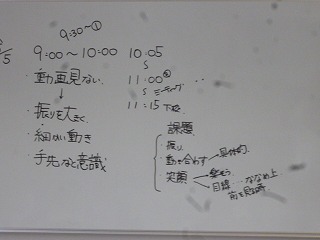 9:30〜①
/5
9:00〜10:00
・動画見ない
↓
・振りを大きく
・細かい動き
・手先など意識
10:05
S
11:00
S ミーティング
11:15 下校
課題
・振り
・動き合わす → 具体的
・笑顔 → 楽そう
→ 目線・ななめ上
前を見る